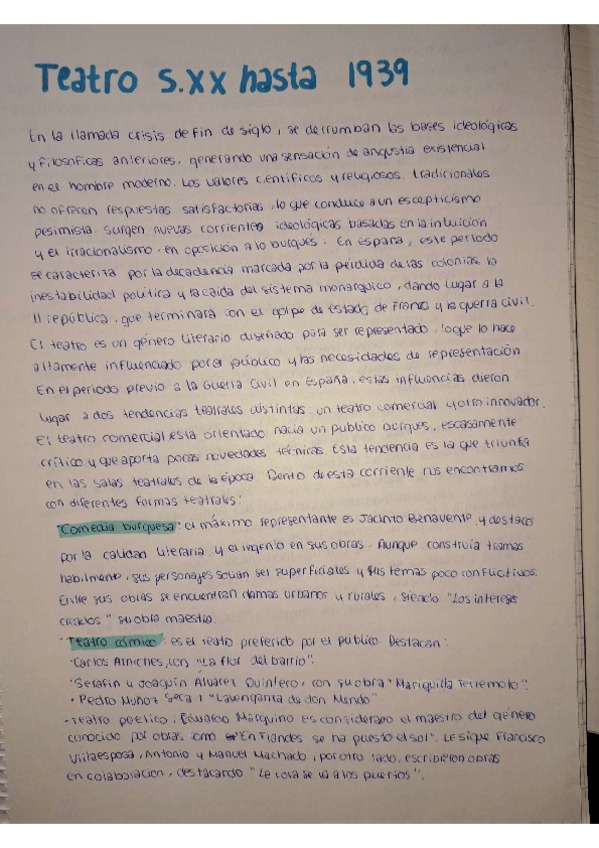 Teatro S.XX hasta 1939
En la llamada crisis de fin de siglo, se derrumban las bases ideológicas
y filosóficas anteriores, generando una sensación de angustia existencial
en el hombre moderno. Los valores científicos y religiosos, tradicionales
no ofrecen respuestas satisfactorias, lo que conduce a un escepticismo
pesimista. Surgen nuevas corrientes ideológicas basadas en la intuición
y el irracionalismo, en oposición a lo burgués. En España, este periodo
se caracteriza por la decadencia marcada por la pérdida de las colonias, la
inestabilidad política y la caída del sistema monárquico, dando lugar a la
II república, que terminará con el golpe de estado de Franco y la guerra civil.
El teatro es un género literario diseñado para ser representado, lo que lo hace
altamente influenciado por el público y las necesidades de representación
En el periodo previo a la Guerra Civil en España, estas influencias dieron
lugar a dos tendencias teatrales distintas: un teatro comercial y otro innovador.
El teatro comercial está orientado hacia un publico burgues, escasamente
crítico y que aporta pocas novedades técnicas. Esta tendencia es la que triunfa
en las salas teatrales de la época. Dentro de esta corriente nos encontramos
con diferentes formas teatrales:
·Comedia burguesa: el máximo representante es Jacinto Benavente, y destacó
por la calidad literaria y el ingenio en sus obras. Aunque construía tramas
habilmente, sus personajes solían ser superficiales y sus temas poco conflictivos.
Entre sus obras se encuentran damas urbanos y rurales, siendo "Los intereses
creados" su obra maestra.
·Teatro cómico: es el teatro preferido por el publico Destacan:
·Carlos Arniches, con "La flor del barrio".
·Serafín y Joaquín Álvarez Quintero, con su obra "Mariquilla Terremoto".
· Pedro Muñoz Seca "La venganza de don Mendo"
-Teatro poético: Eduardo Marquino es considerado el maestro del género
conocido por obras como "En Flandes se ha puesto el sol". Le sigue Francisco
Villaespesa, Antonio y Manuel Machado, por otro lado, escribieron obras
en colaboración, destacando "La Lola se va a los puertos".